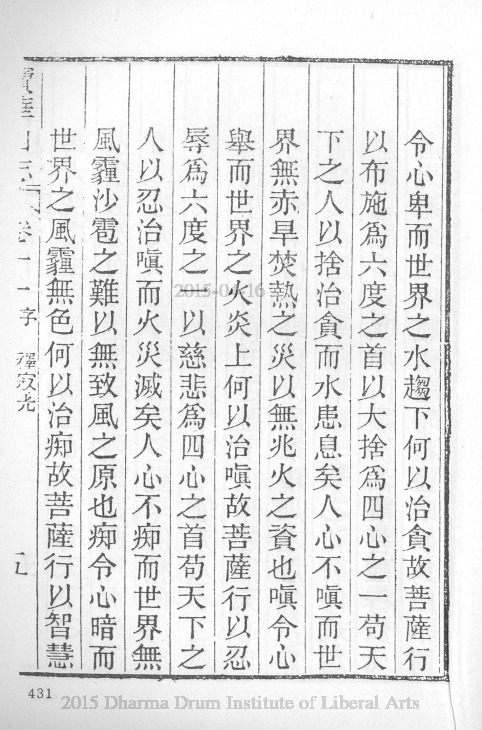 令心卑而世界之水趨下何以治貪故菩薩行
以布施爲六度之首以大捨爲四心之一苟天
下之人以捨治貪而水患息矣人心不嗔而世
界無赤旱焚熱之災以無兆火之資也嗔令心
舉而世界之火炎上何以治嗔故菩薩行以忍
辱爲六度之一以慈悲爲四心之首苟天下之
人以忍治嗔而火災滅矣人心不痴而世界無
風霾沙雹之難以無致風之原也痴令心暗而
世界之風霾無色何以治痴故菩薩行以智慧
卷十一 字 釋寂光
九
431
2015-04-16
2015 Dharma Drum Institute of Liberal Arts